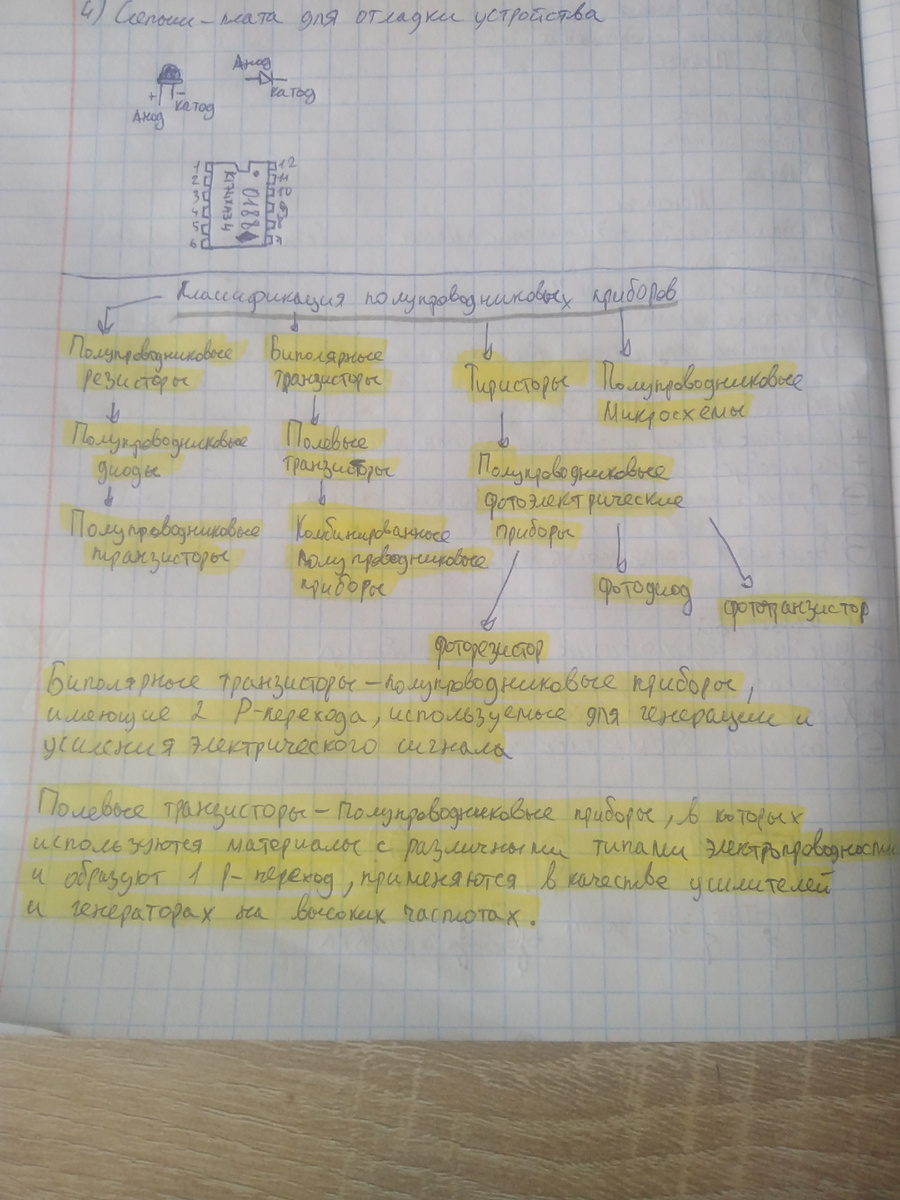 4) Слепыш-плата для отладки устройства
Анод
катод
+ -
катод
Анод
1 12
2 11
3 10
4 9
5 8
6 7
К174ХА34
0188
Классификация полупроводниковых приборов
Полупроводниковые
резисторы
Биполярные
транзисторы
Тиристоры
Полупроводниковые
Микросхемы
Полупроводниковые
диоды
Полевые
транзисторы
Полупроводниковые
фотоэлектрические
приборы
Полупроводниковые
транзисторы
Комбинированные
полупроводниковые
приборы
фотодиод
фототранзистор
фоторезистор
Биполярные транзисторы - полупроводниковые приборы,
имеющие 2 Р-перехода, используемые для генерации и
усиления электрического сигнала
Полевые транзисторы - Полупроводниковые приборы, в которых
используются материалы с различными типами электропроводности
и образуют 1 р-переход, применяются в качестве усилителей
и генераторах на высоких частотах.